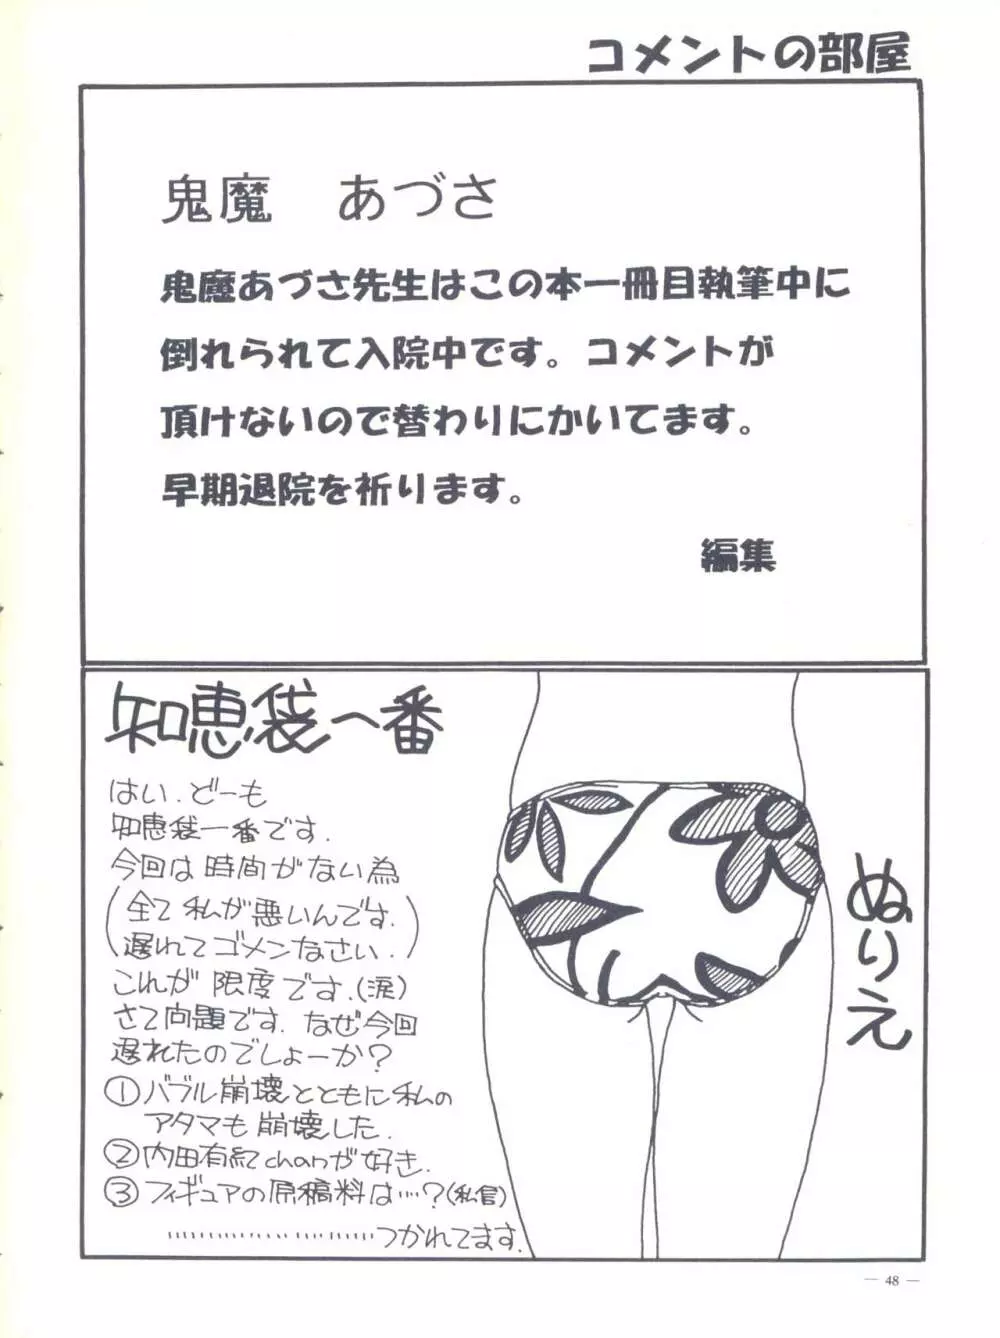 コメントの部屋
鬼魔　あづさ
鬼魔あづさ先生はこの本一冊目執筆中に
倒れられて入院中です。コメントが
頂けないので替わりにかいてます。
早期退院を祈ります。
編集
知恵袋一番
はい、どーも
知恵袋一番です.
今回は時間がない為
(全て私が悪いんです.
遅れてゴメンなさい.)
これが限度です.(涙)
さて問題です. なぜ今回
遅れたのでしょーか?
①バブル崩壊とともに私の
アタマも崩壊した.
②内田有紀chanが好き.
③フィギュアの原稿料は…?(私信)
……………………つかれてます.
ぬりえ
— 48 —